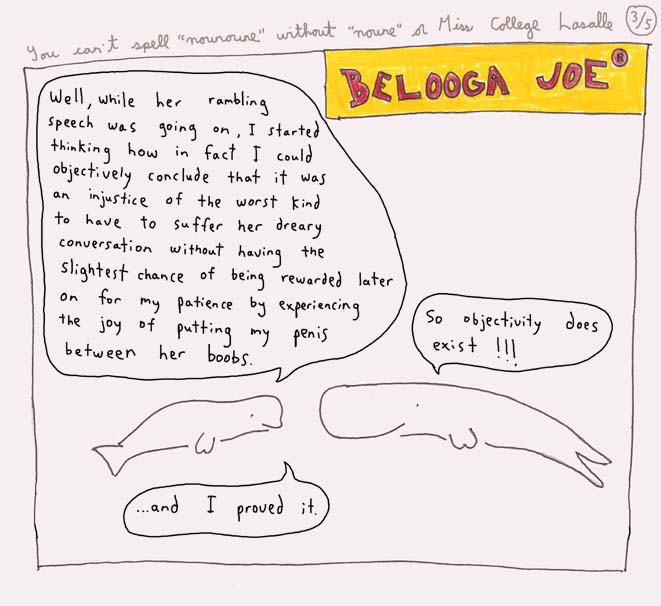 You can't spell "nounoune" without "noune" or Miss College Lasalle 3/5
BELOOGA JOE®
Well, while her rambling
speech was going on, I started
thinking how in fact I could
objectively conclude that it was
an injustice of the worst kind
to have to suffer her dreary
conversation without having the
slightest chance of being rewarded later
on for my patience by experiencing
the joy of putting my penis
between her boobs.
So objectivity does
exist !!!
...and I proved it.